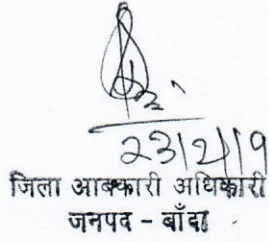 23/2/19
जिला आबकारी अधिकारी
जनपद - बाँदा